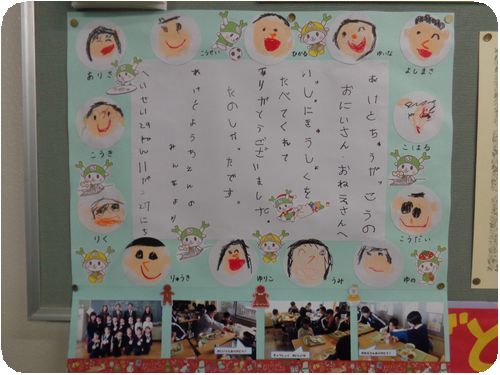 ありさ
こうせい
ひかる
ゆいな
よしまさ
あけとちゅうがっこうの
おにいさん、おねえさんへ
いっしょにきゅうしょくを
たべてくれて
ありがとうございました。
たのしかったです。
あけとようちえんの
みんなより
へいせい29ねん11がつ27にち
こうき
こはる
りく
こうだい
りゅうき
ゆりこ
うみ
ゆの